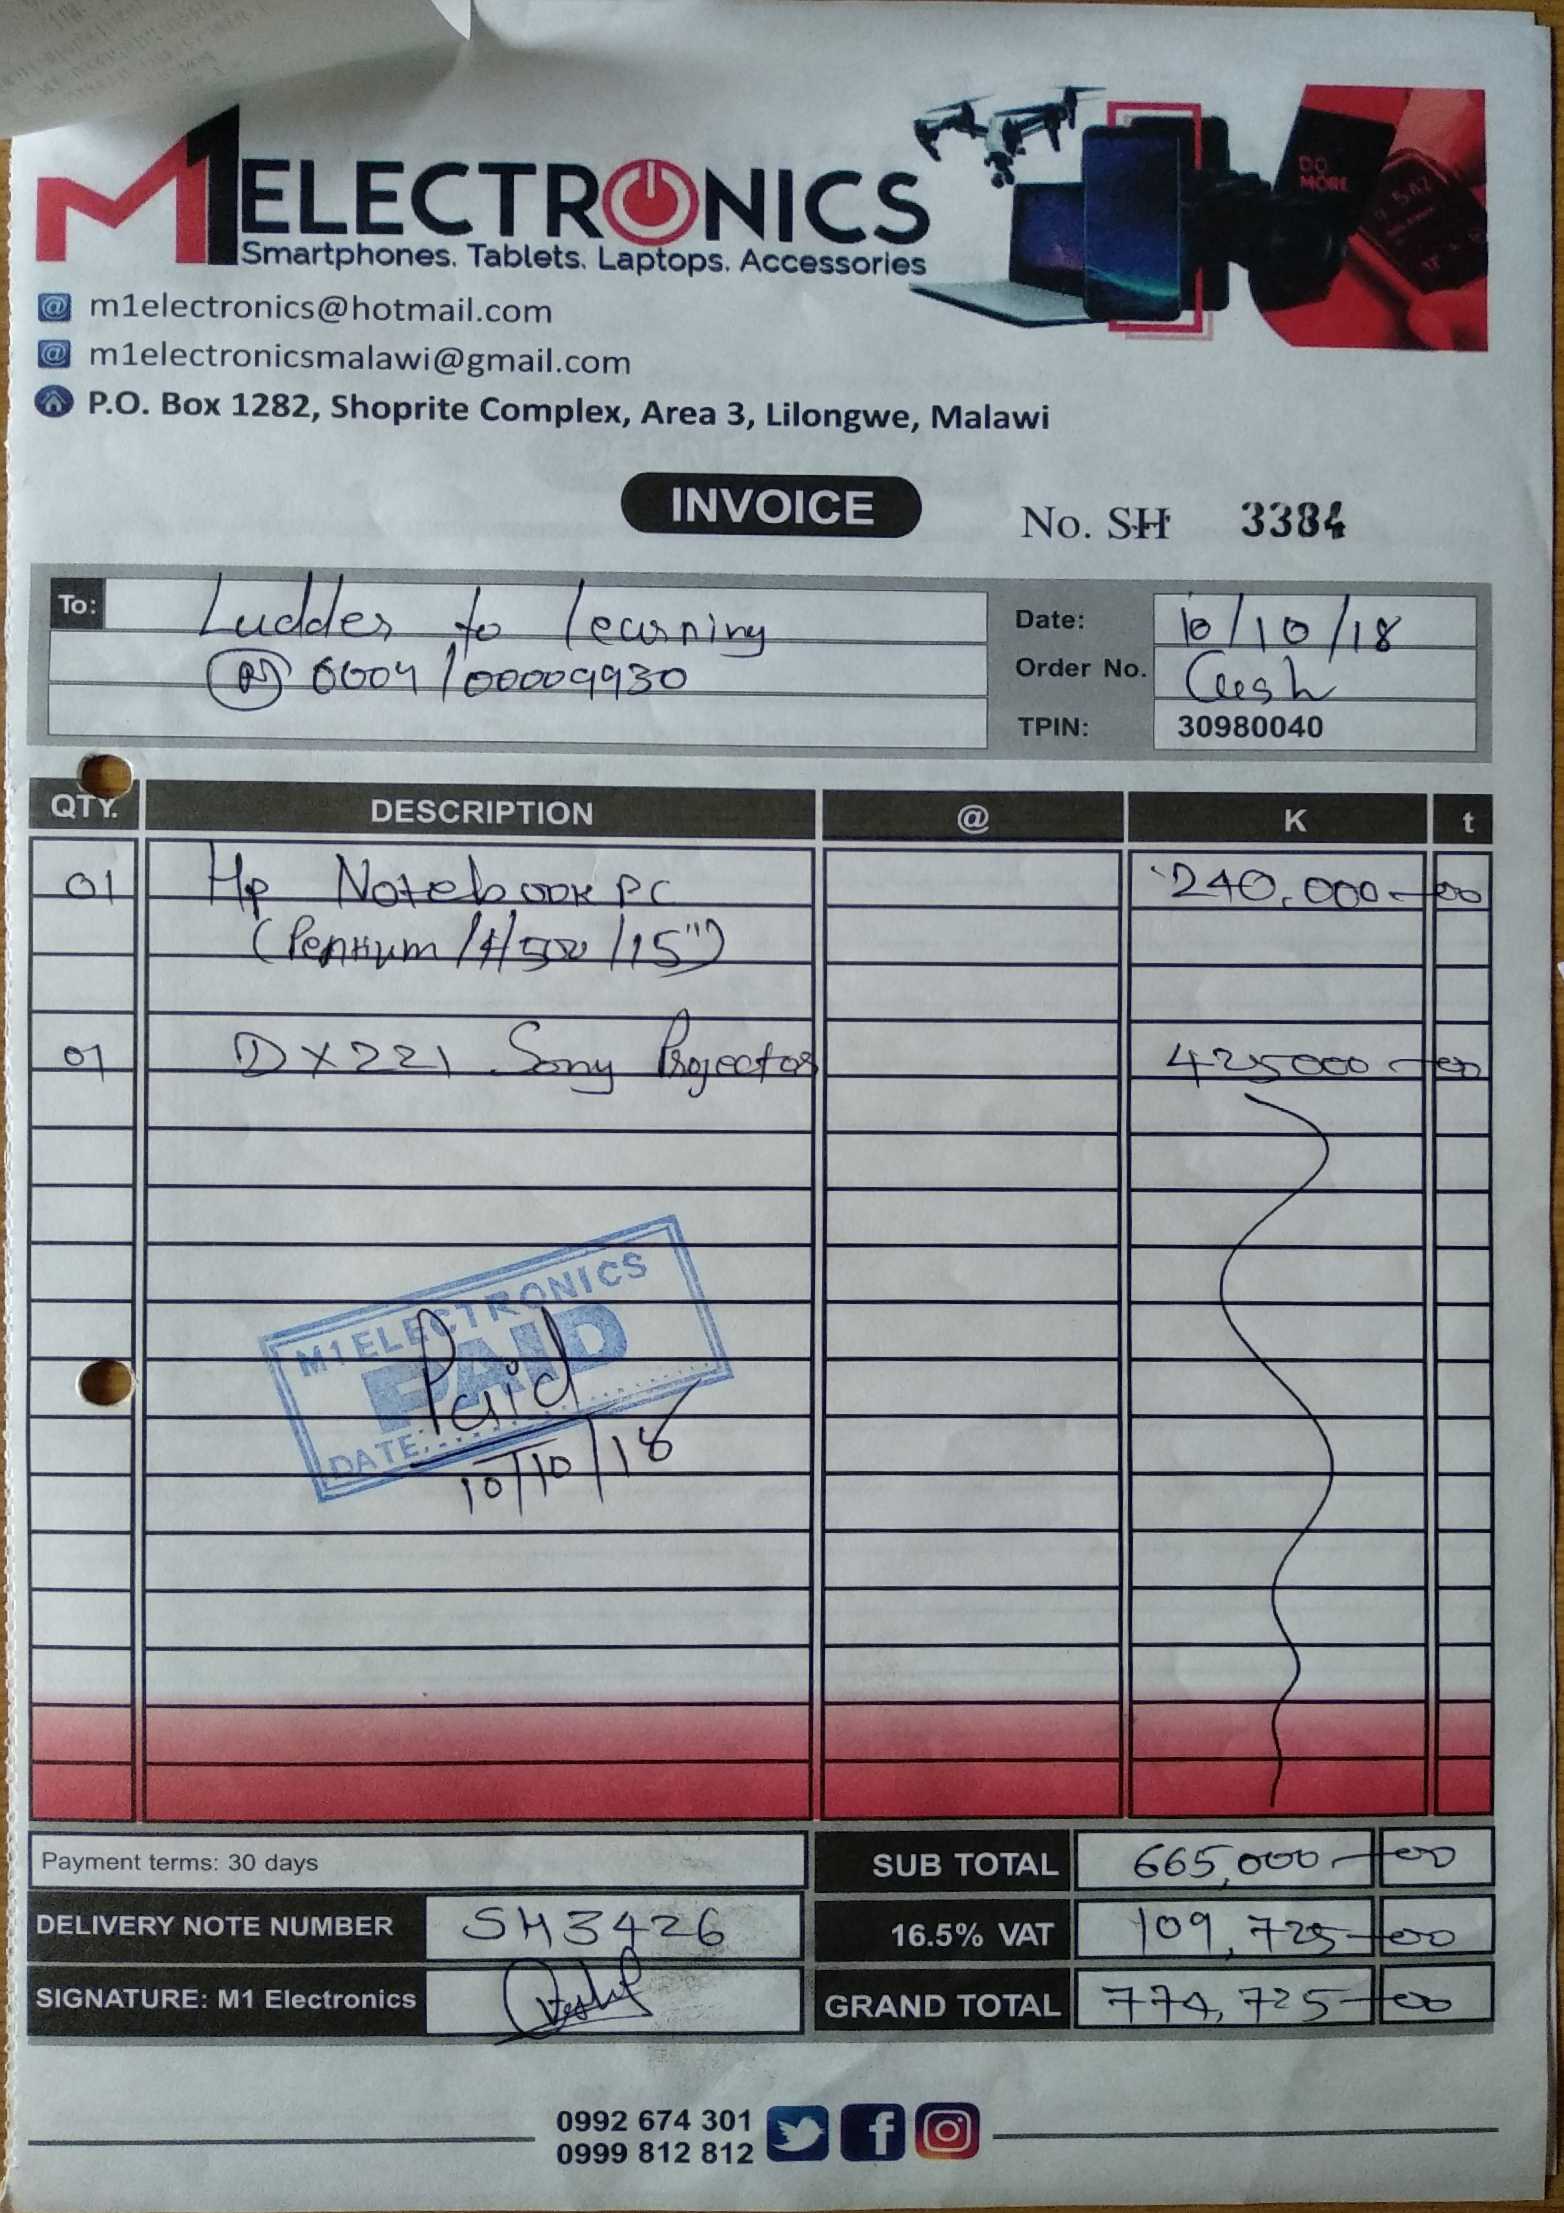 M1ELECTRONICS
Smartphones. Tablets. Laptops. Accessories
DO MORE
m1electronics@hotmail.com
m1electronicsmalawi@gmail.com
P.O. Box 1282, Shoprite Complex, Area 3, Lilongwe, Malawi
INVOICE No. SH 3384
To: Ladder to learning Date: 10/10/18
6604/00009930 Order No. Cash
TPIN: 30980040
QTY. DESCRIPTION @ K t
01 Hp Notebook PC 240,000-00
(Pentium/4/500/15")
01 DX221 Sony Projector 425000-00
M1ELECTRONICS
PAID
Paid
DATE
10/10/18
Payment terms: 30 days SUB TOTAL 665,000-00
DELIVERY NOTE NUMBER SH3426 16.5% VAT 109,725-00
SIGNATURE: M1 Electronics GRAND TOTAL 774,725-00
0992 674 301
0999 812 812